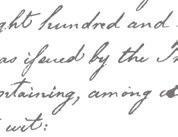 ght hundred and
as issued by the
ontaining, among
t wit: